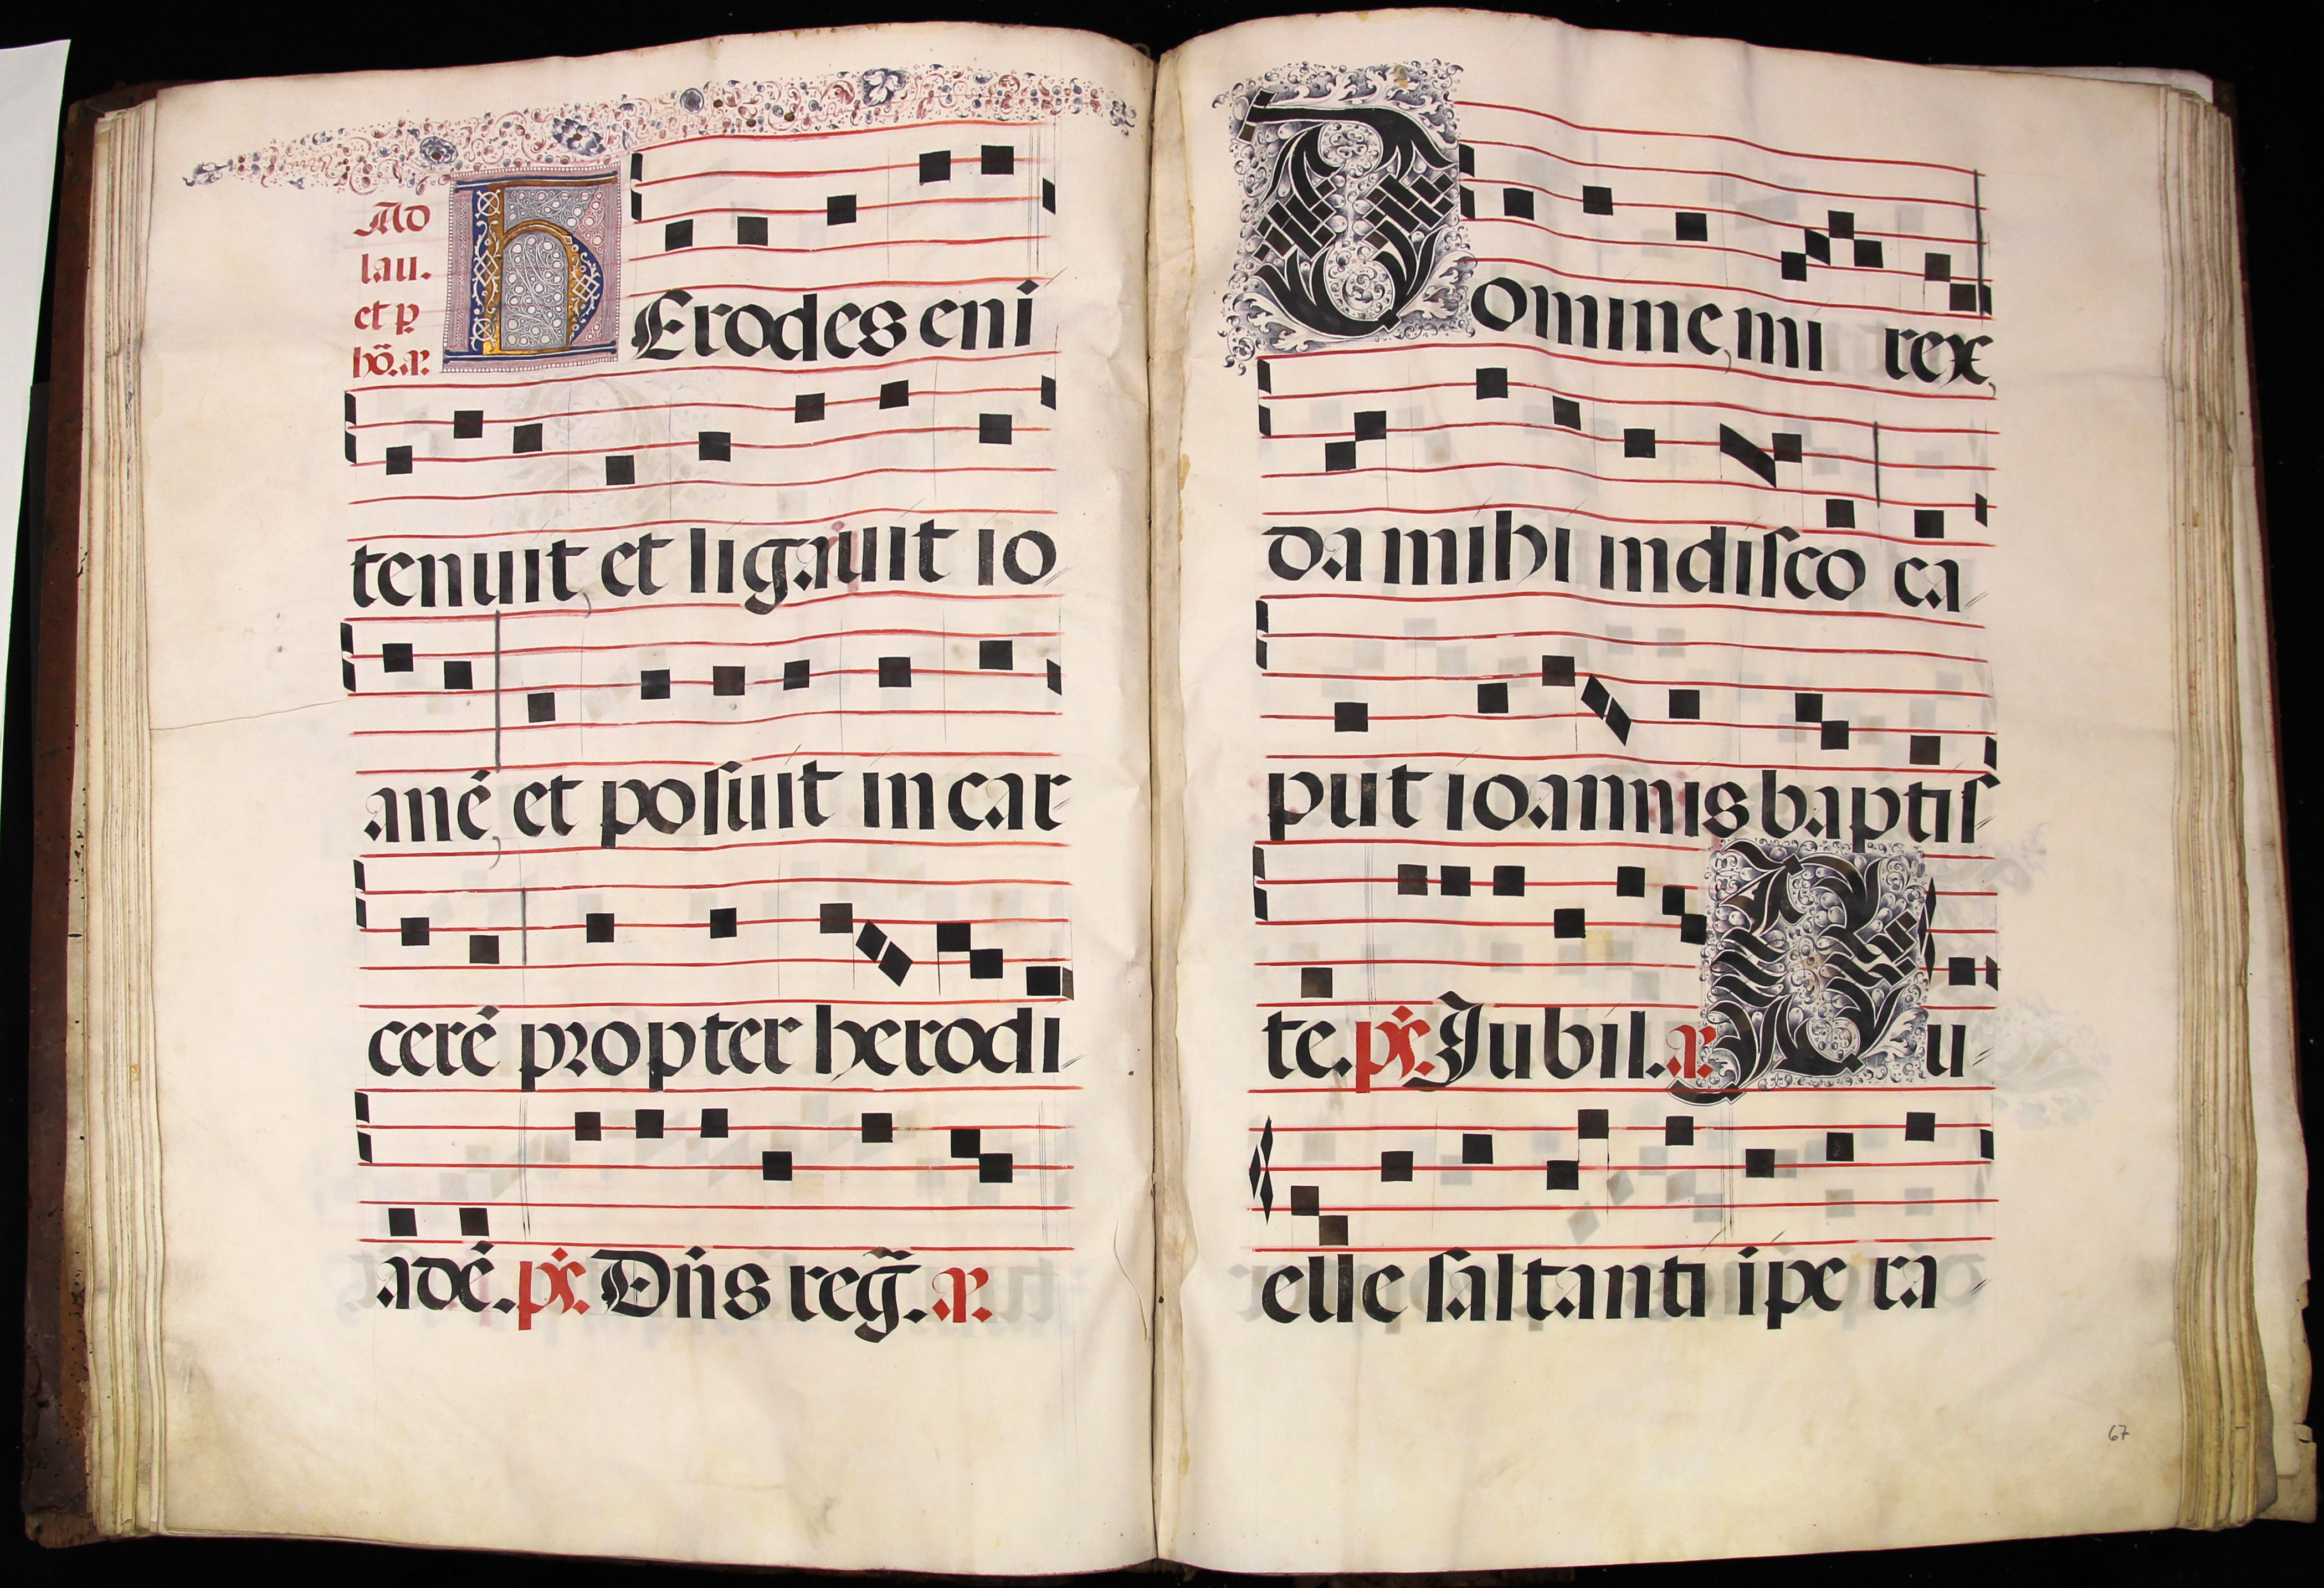 Ad
lau.
et p
hõ. a.
hErodes eni
tenuit, et ligauit io
anē, et posuit in car
cerē propter herodi
adē. ps. Dñs reg̃. a.
Domine, mi rex,
da mihi in disco ca
put ioannis baptis
te. ps. Jubil. a. Pu
elle saltanti ipera
67